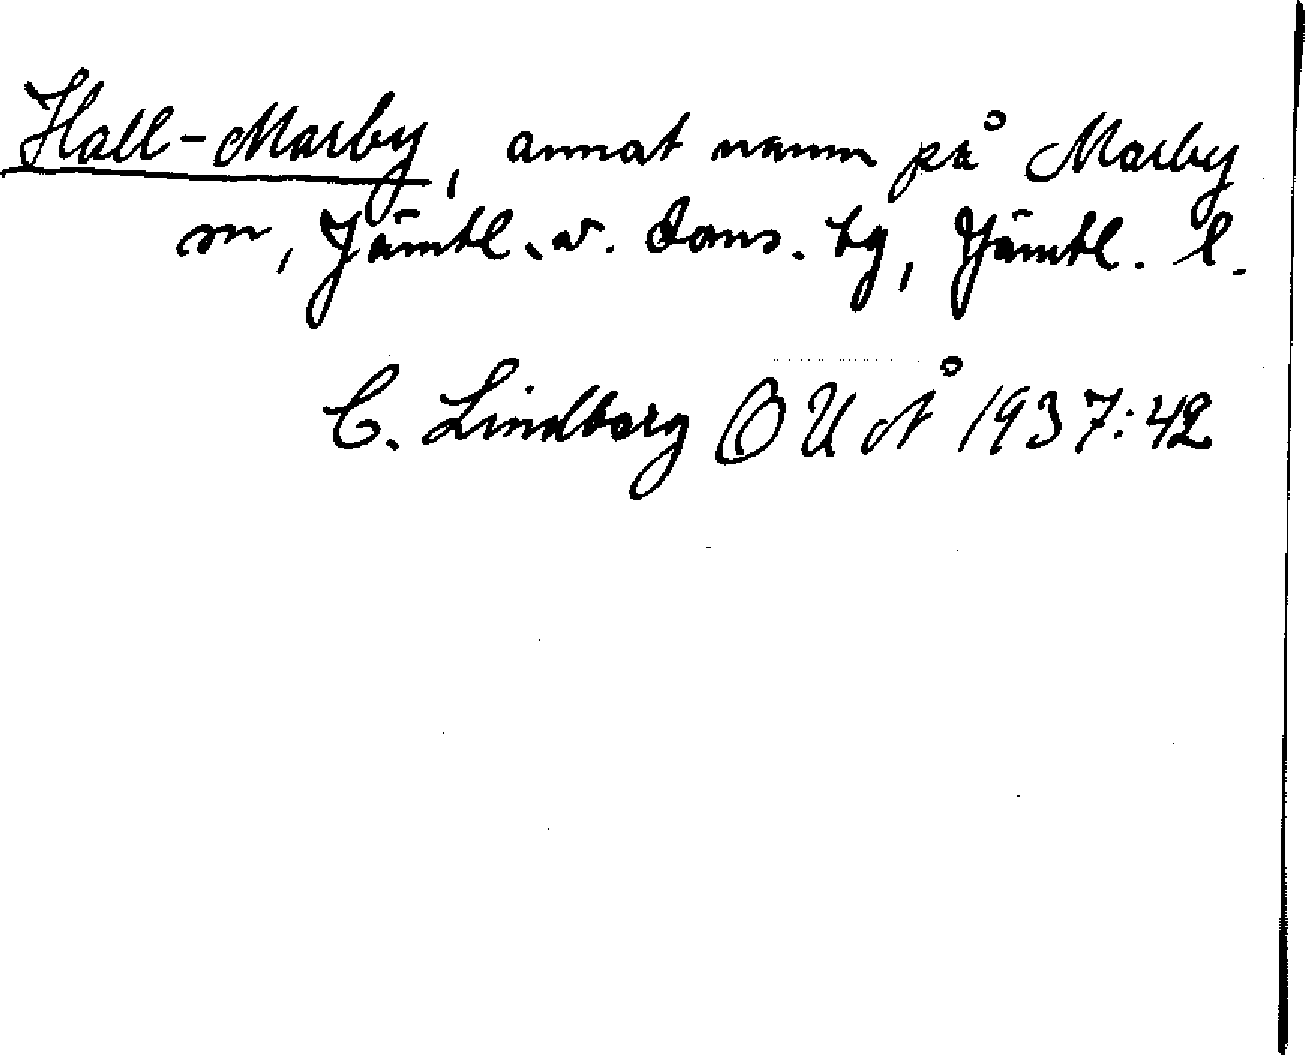 Hall-Marby, annat namn på Marby
sn, Jämtl. v. doms. tg, Jämtl. l.
C. Lindberg OUÅ 1937:42